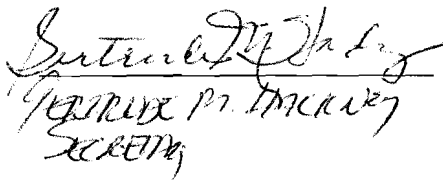 Gertrude M. Hackney
GERTRUDE M. HACKNEY
SECRETARY